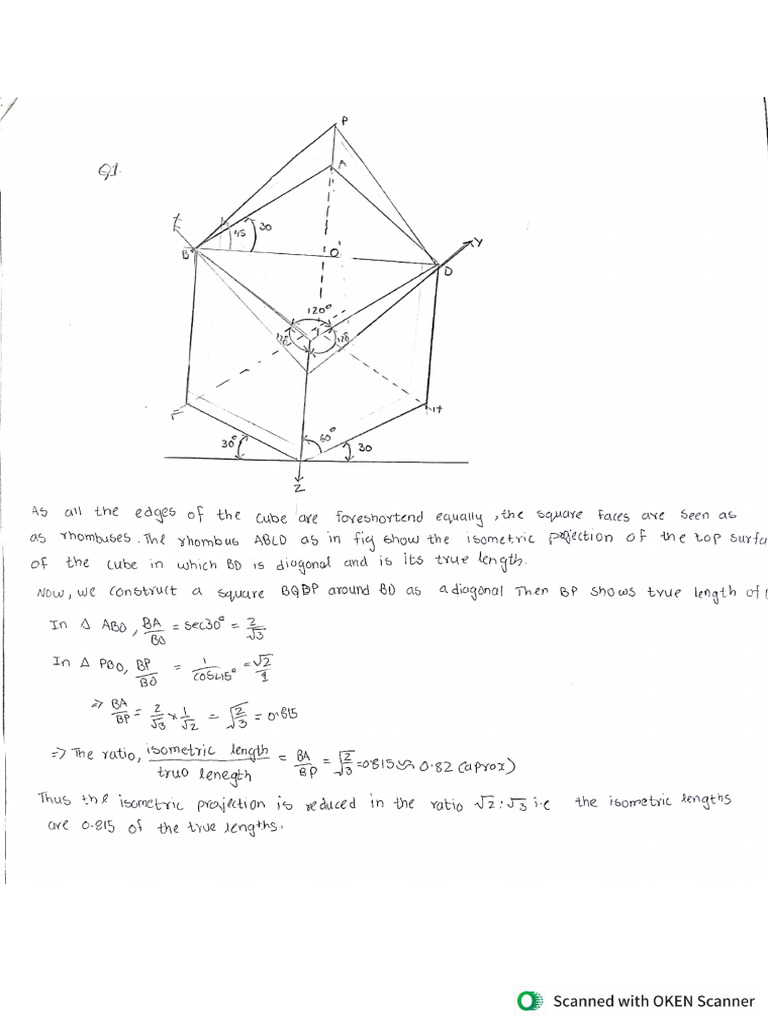 Q1.
P
A
X
45
30
B
O
Y
D
120°
120
120
F
H
30°
60°
30
Z
As all the edges of the cube are foreshortend equally, the square faces are seen as
as rhombuses. The rhombus ABCD as in fig show the isometric projection of the top surfa
of the cube in which BD is diagonal and is its true length.
Now, we construct a square BQDP around BD as a diagonal Then BP shows true length of
In Δ ABO, BA/BO = sec30° = 2/√3
In Δ PBO, BP/BO = 1/cos45° = √2/1
⇒ BA/BP = 2/√3 × 1/√2 = √2/3 = 0.815
⇒ The ratio, isometric length/truo lenegth = BA/BP = √2/3 = 0.815 ≈ 0.82 (aprox)
Thus the isometric projection is reduced in the ratio √2:√3 i.e the isometric lengths
are 0.815 of the true lengths.
Scanned with OKEN Scanner